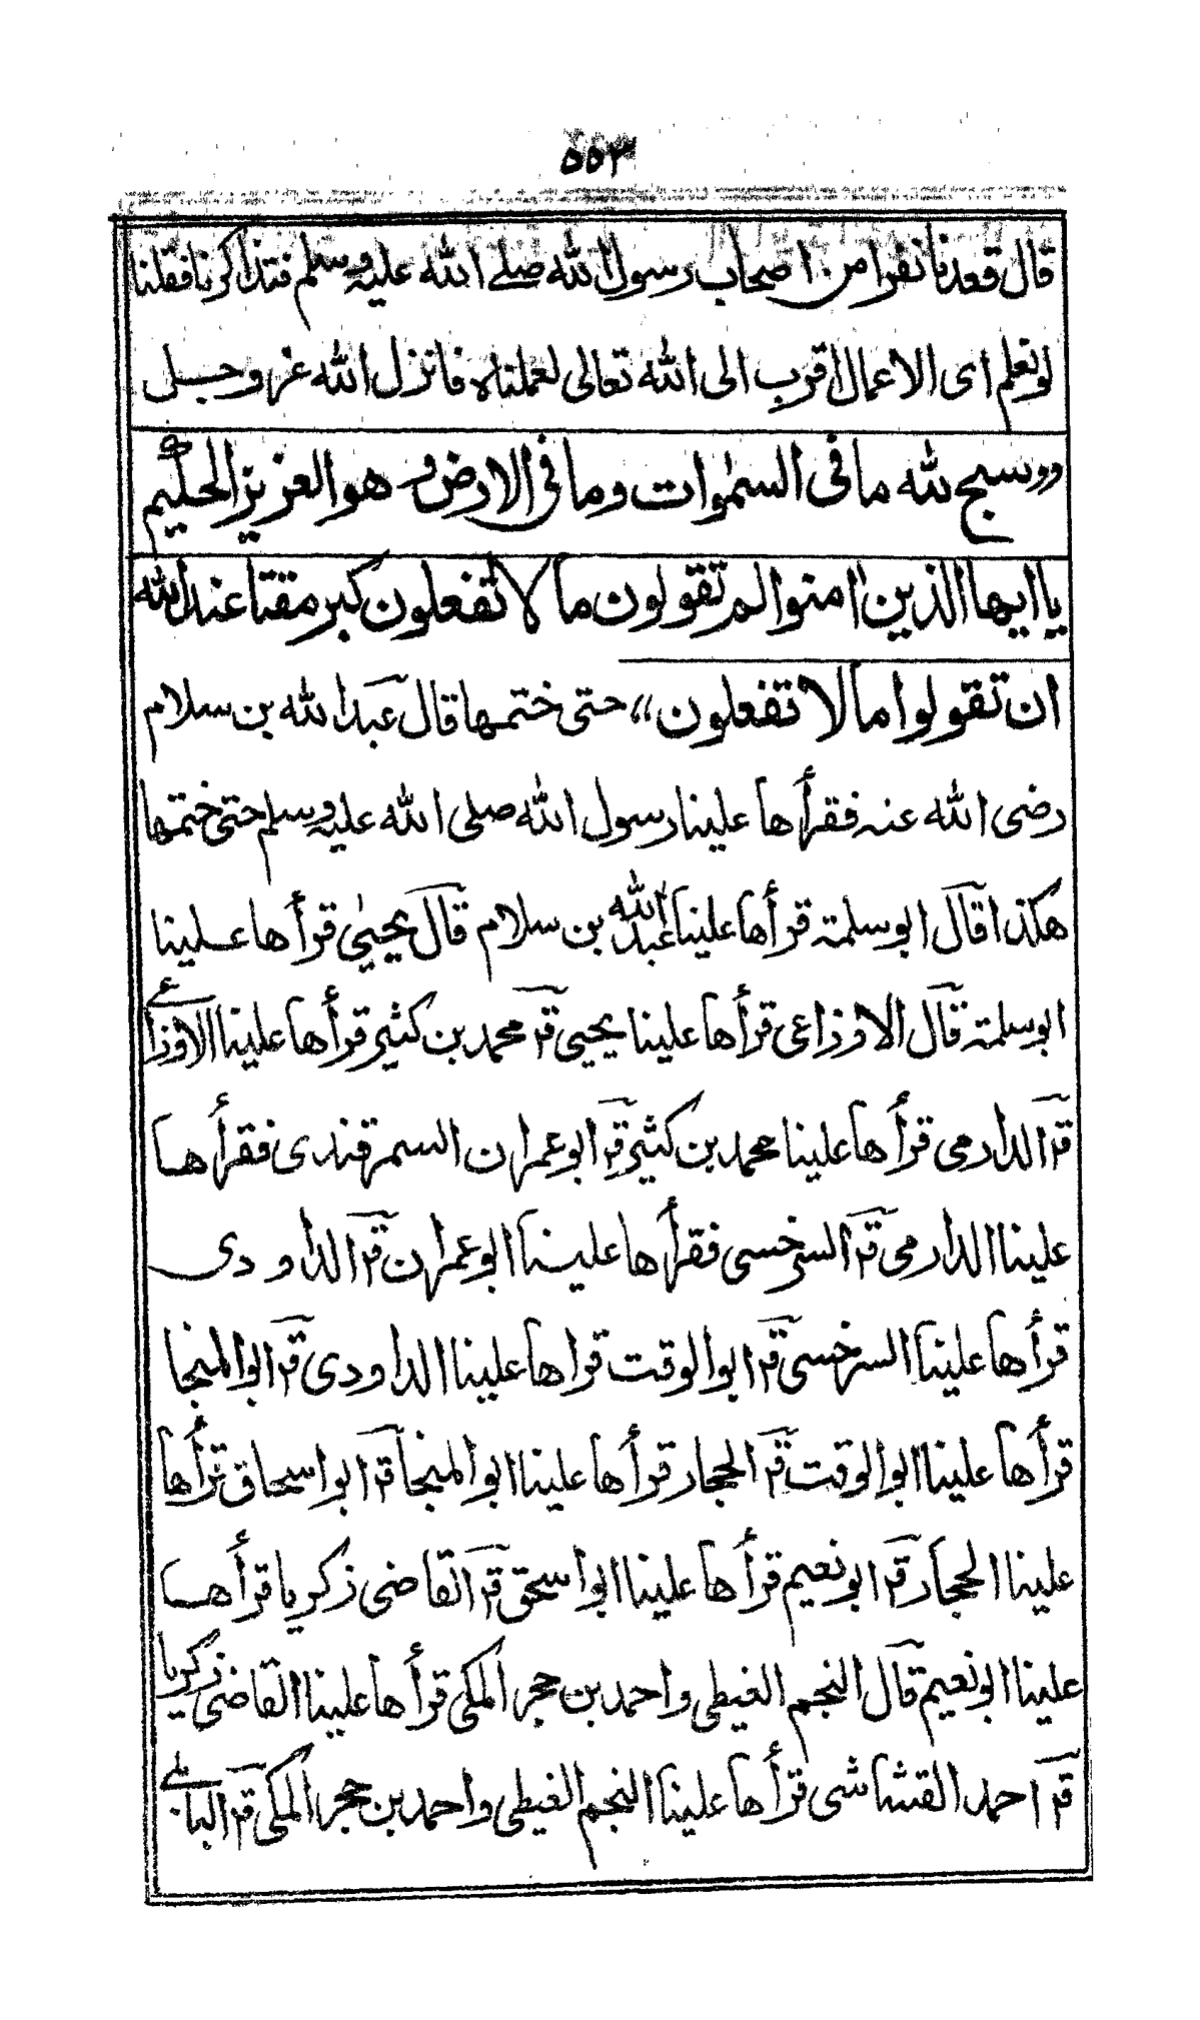 ٥٥٣
قال قعدنا نفرا من اصحاب رسول الله صلے الله عليه وسلم فتذاكرنا فقلنا
لو نعلم اى الاعمال اقرب الى الله تعالى لعملناه فانزل الله عز وجل
،،سبح لله ما فى السمٰوات وما فى الارض وهو العزيز الحكيم
يا ايها الذين اٰمنوا لم تقولون ما لا تفعلون كبر مقتا عند الله
ان تقولوا ما لا تفعلون،، حتى ختمها قال عبد الله بن سلام
رضى الله عنه فقرأها علينا رسول الله صلى الله عليه وسلم حتى ختمها
هكذا قال ابو سلمة قرأها علينا عبد الله بن سلام قال يحيىٰ قرأها علينا
ابو سلمة قال الاوزاعى قرأها علينا يحيى قر محمد بن كثير قرأها علينا الاوزاعے
قر الدارمى قرأها علينا محمد بن كثير قر ابو عمران السمرقندى فقرأها
علينا الدارمى قر السرخسى فقرأها علينا ابو عمران قر الداودى
قرأها علينا السرخسى قر ابو الوقت قراها علينا الداودى قر ابو المنجا
قرأها علينا ابو الوقت قر الحجار قرأها علينا ابو المنجا قر ابو اسحاق قرأها
علينا الحجار قر ابو نعيم قرأها علينا ابو اسحق قر القاضى زكريا قرأها
علينا ابو نعيم قال النجم الغيطى واحمد بن حجر المكى قرأها علينا القاضى زكريا
قر احمد القشاشى قرأها علينا النجم الغيطى واحمد بن حجر المكى قر البابلے